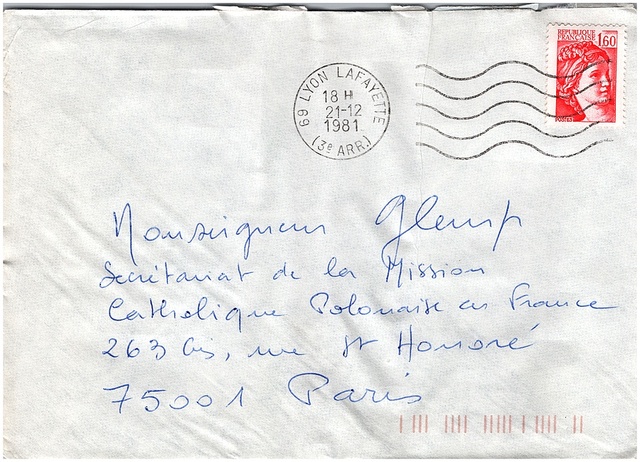 REPUBLIQUE
FRANÇAISE 1,60
69 LYON LAFAYETTE
18 H
21-12
1981
(3e ARR.)
Monseigneur Glemp
Secrétariat de la Mission
Catholique Polonaise en France
263 bis, rue St Honoré
75001 Paris